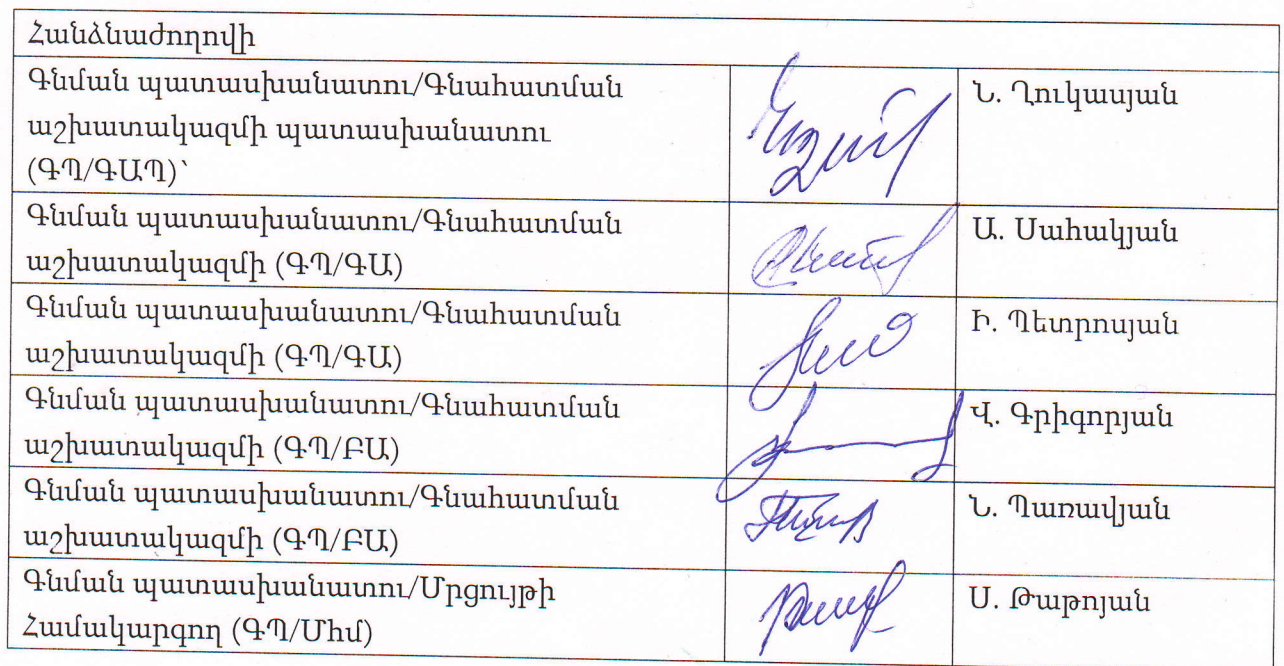 Հանձնաժողովի
Գնման պատասխանատու/Գնահատման
աշխատակազմի պատասխանատու
(ԳՊ/ԳԱՊ)՝
Ն. Ղուկասյան
Գնման պատասխանատու/Գնահատման
աշխատակազմի (ԳՊ/ԳԱ)
Ա. Սահակյան
Գնման պատասխանատու/Գնահատման
աշխատակազմի (ԳՊ/ԳԱ)
Ի. Պետրոսյան
Գնման պատասխանատու/Գնահատման
աշխատակազմի (ԳՊ/ԲԱ)
Վ. Գրիգորյան
Գնման պատասխանատու/Գնահատման
աշխատակազմի (ԳՊ/ԲԱ)
Ն. Պառավյան
Գնման պատասխանատու/Մրցույթի
Համակարգող (ԳՊ/Մհմ)
Ս. Թաթոյան